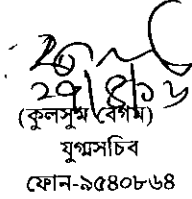 (কুলসুম বেগম)
যুগ্মসচিব
ফোন-৯৫৪০৮৬৪